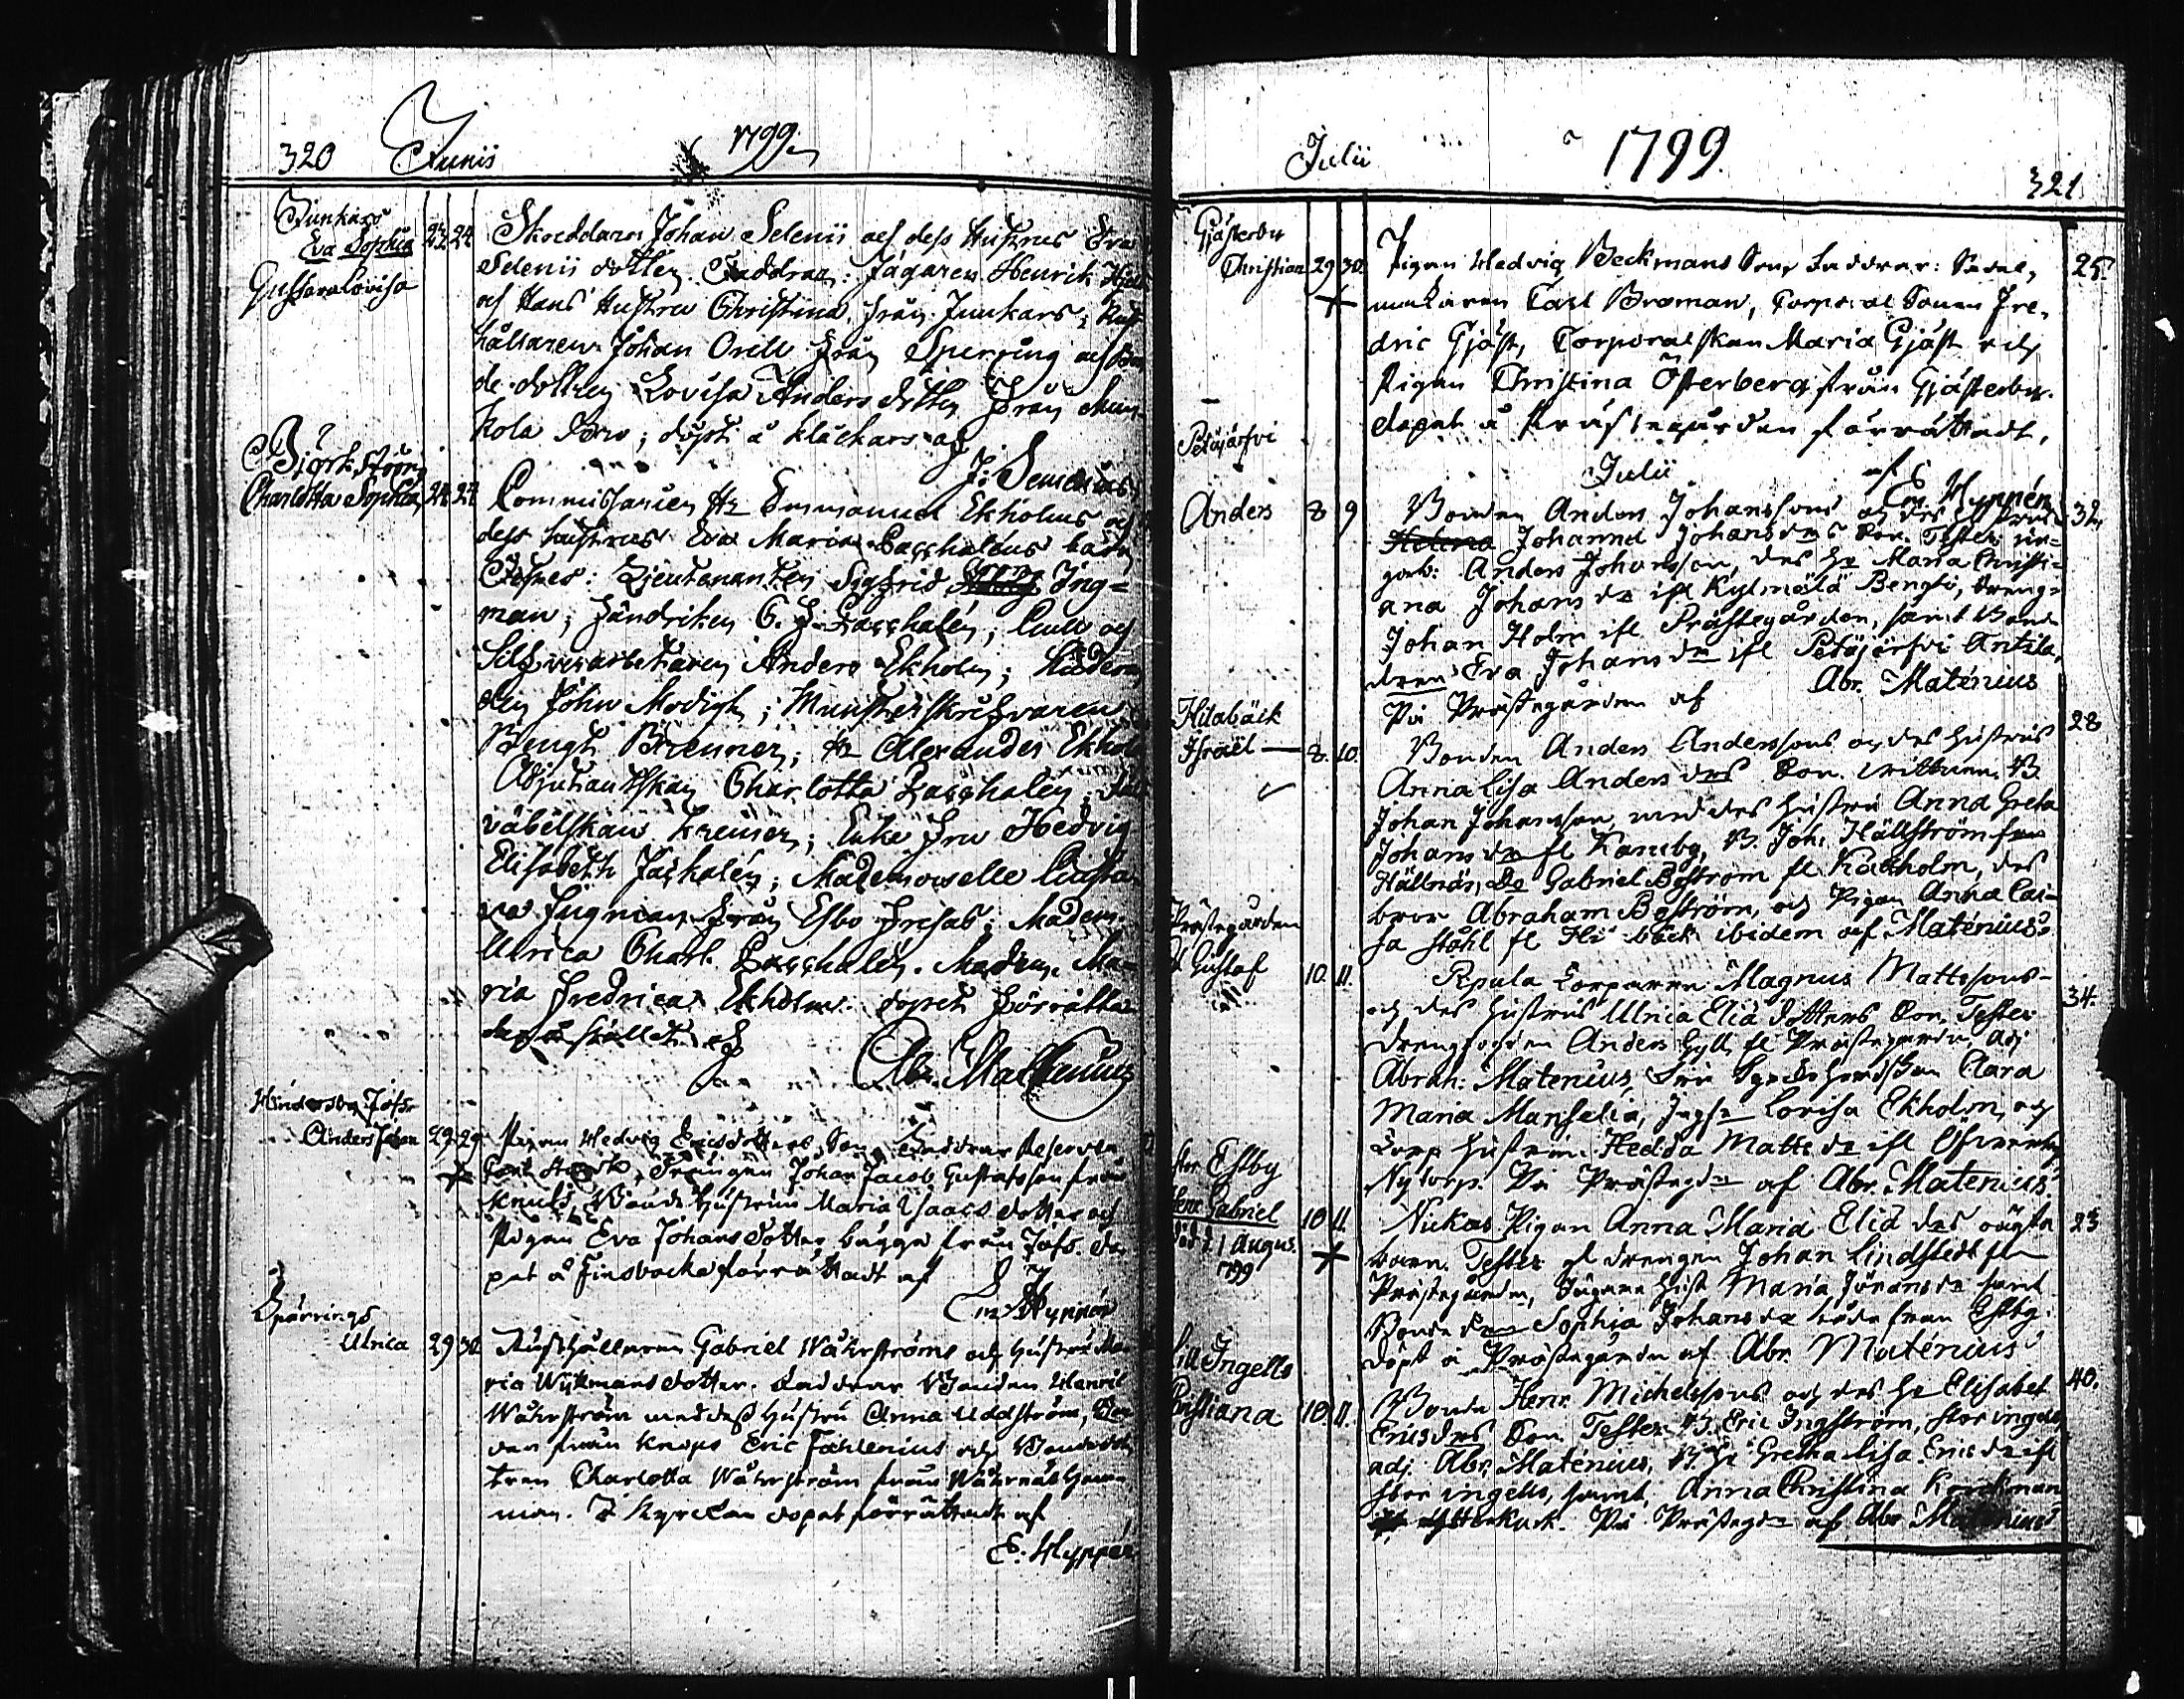 320 Junii 1799.
Junkars
Eva Sophia 23 24 Skräddaren Johan Selenii och dess Hustrus Eva
Gustava Lovisa Selenii dotter. Faddrar: Jägaren Henrich
och Hans Hustru Christina, från Junkars; Rust
hållaren Johan Orell från Sperring och Bon
de dottren Lovisa Anders dotter från Mun
kola döpt å Kläckars af
J: Senenius
Björkströmg
Charlotta Sophia 24 24 Commissarien Hr Emmanuel Ekholms och
dess hustrus Eva Maria Paschaléns barn
Testes: Lieutenanten Sigfrid Ing=
man; fändriken C. J. Paschalén; Gull och
Silfverarbetaren Anders Ekholm; Stud
den John Modigh; Munsterskrifvaren
Bengt Brenner; Hr Alexander Ekholm
Adjutantskan Charlotta Paschalén; Fält
väbelskan Kreuser; Enke Fru Hedvig
Elisabeth Paschalén; Mademoiselle Gusta
va Ingman från Esbo; Madem.
Ulrica Charl. Paschalén. Madem. Ma=
ria Fredrica Ekholm. dopet förrätta
des å stället af
Abr. Mathenius
Hindersby Jofs.
Anders Johan 29 29 Pigan Hedvig Ericsdotters Son, Faddrar Reserven
Carl Stark, Drängen Johan Jacob Gustafsson från
Knuts, Bonde Hustrun Maria Isaacs dotter och
Pigan Eva Johans dotter bägge från Jofs. do
pet å Finsbacka förrättadt af
Em. Hyppén
Spärrings
Ulrica 29 30 Rusthållaren Gabriel Wåhrströms och Hustru Ma
ria Wijkmans dotter. Faddrar Bonden Henric
Wåhrström med dess Hustru Anna Uddström, Bon
den från Knaps Eric Fahlenius och Bonde dot
tren Charlotta Wåhrström från Wåhrnäs
I Kyrckan dopet förrättadt af
E. Hyppén
Julii 1799. 321.
Gjästerby
Christian 29 30 Pigan Hedvig Beckmans Son, Faddrar: Sadel, 25.
makaren Carl Broman, Corporal Sonen Fre,
dric Gjäst, Corporalskan Maria Gjäst och
Pigan Christina Österberg från Gjästerby.
dopet å Prästegården förrättadt,
af Em Hyppén
Julii
Petäjärfvi
Anders 8 9 Bonden Anders Johanssons och des Hustrus 32.
Johanna Johansdrs Son. Testes in=
gab: Anders Johansson, des Hu Maria Christi=
ana Johans dr ifl Kylmälä Bengts, dreng=
Johan Holm ifl Prästegården, samt Bonde
dren Eva Johans dr ifl Petäjärfvi Antila,
På Prästegården af Abr. Maténius
Hilabäck
Israël 8. 10. Bonden Anders Anderssons och des Hustrus 28
Anna Lisa Anders drs Son. vittnen. B.
Johan Johansson, med des Hustru Anna Greta
Johans dr fl Karuby, B. Joh. Hällström från
Hällnäs, Dr Gabriel Boström fl Kackholm, des
bror Abraham Boström, och Pigan Anna Cai-
sa Ståhl fl Hilabäck ibidem af Maténius
Prästegården
Gustaf 10. 11. Spula Torparen Magnus Mattssons 34.
och des Hustrus Ulrica Elia dotters Son, Testes
Drengsonen Anders Gyll, fl Prästegården, Adj.
Abrah: Matenius, Clara
Maria Manselia, Jngfr Lovisa Ekholm, och
Torp hustrun Hedda Matts dr ifl
Nytorp. På Prästegdn af Abr. Matenius
Stor Estby
Henr Gabriel 10 11. Nickas Pigan Anna Maria Elia des oägta 23
död d. 1 Augus.
1799 barn. Testes äl drengen Johan Lindstedt från
Prästegården, Jägare Hust Maria Jöransdr samt
Bonde dren Sophia Johans dr båda från Estby.
döpt å Prästegården af Abr. Maténius
Lill Ingells
Christiana 10 11. Bonden Henr. Michelssons och des Hu Elisabet 40.
Erics drs Dotr. Testes B. Eric Ingström, Stor ingels,
adj. Abr. Maténius, B. Hu Gretha Lisa Erics dr ifl
Stor ingels, samt, Anna Christina Korckman
På Prästegdn af Abr Maténius